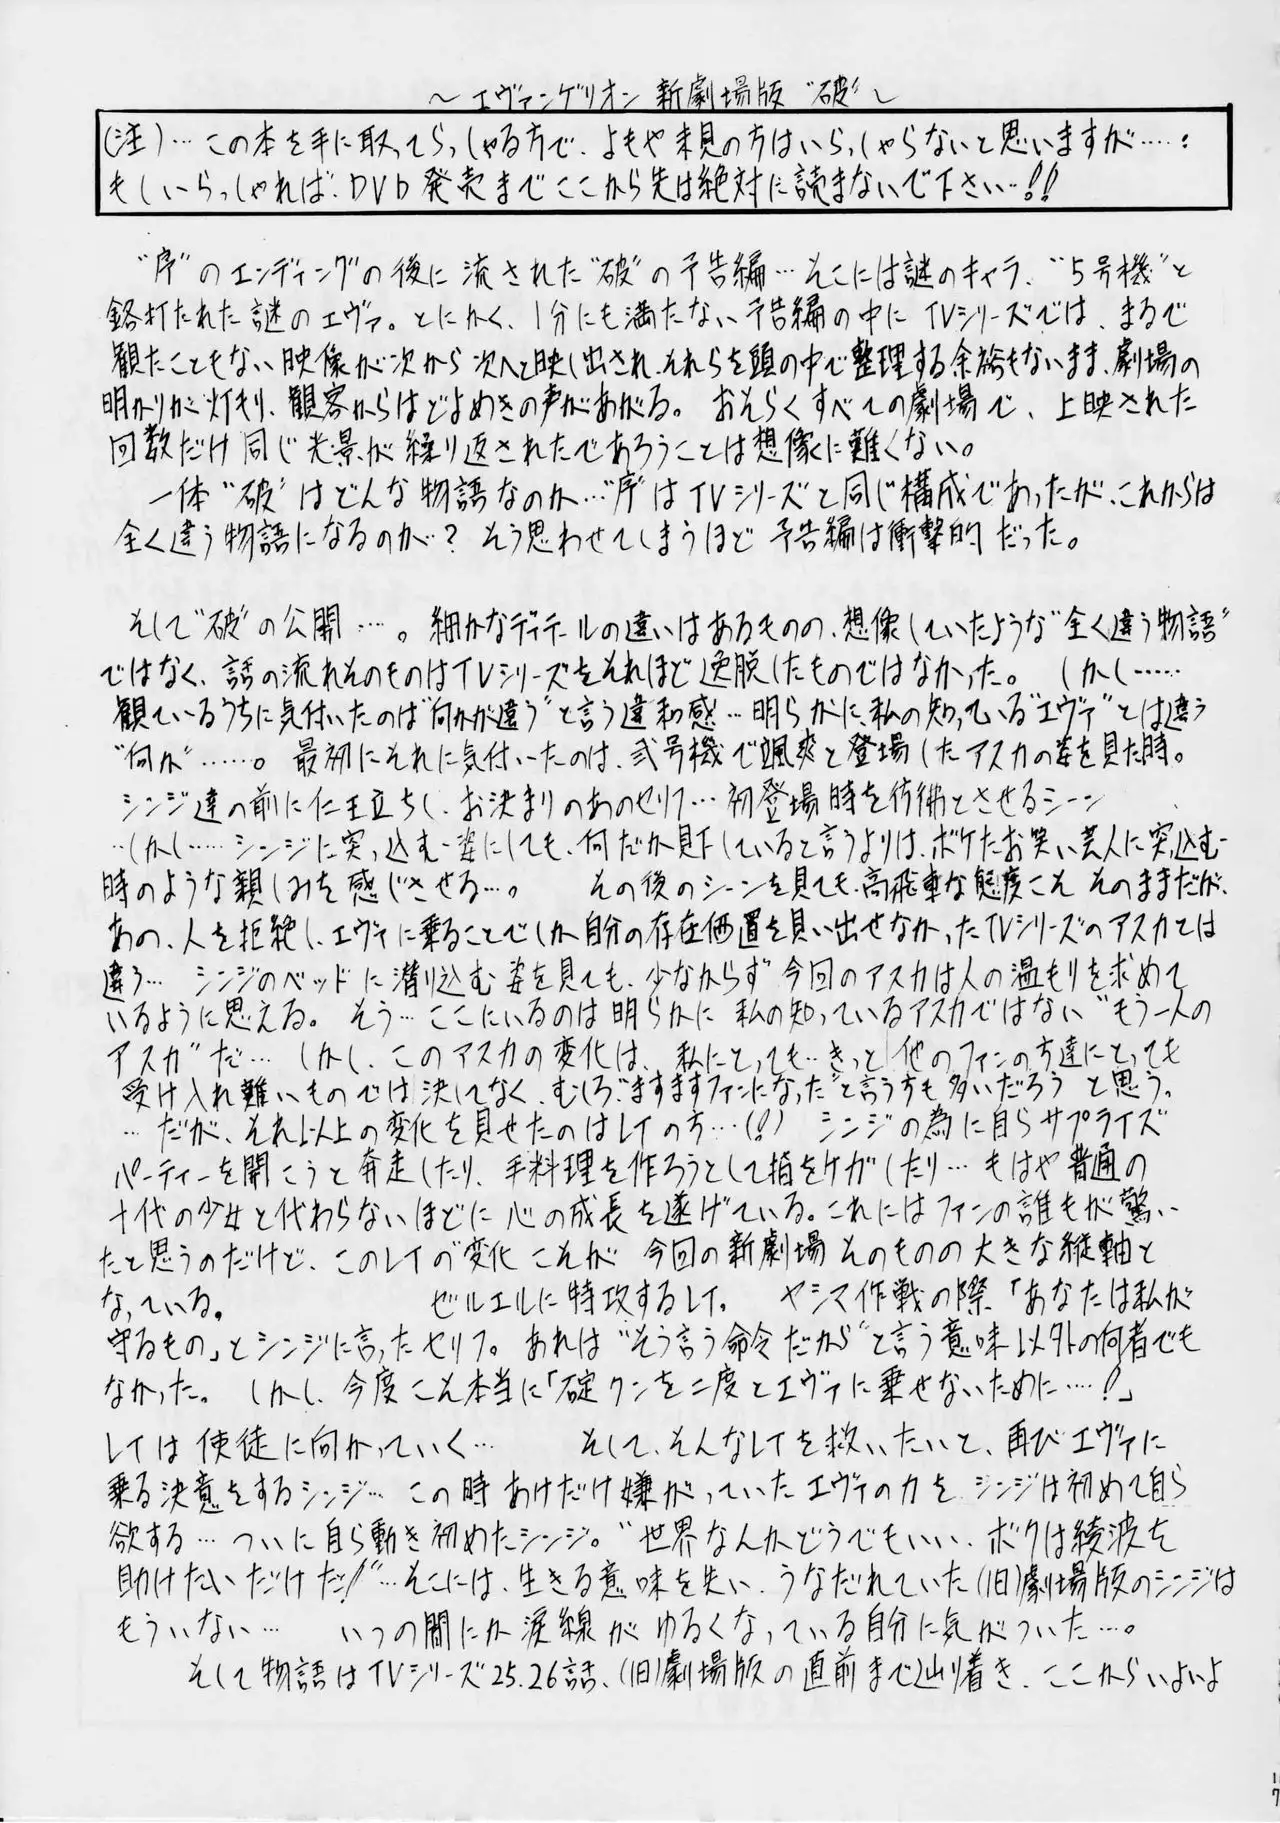 ～エヴァンゲリオン 新劇場版 "破"～
(注)…この本を手に取ってらっしゃる方で、よもや未見の方はいらっしゃらないと思いますが……:
もしいらっしゃれば、DVD発売までここから先は絶対に読まないで下さい…!!
"序"のエンディングの後に流された"破"の予告編…そこには謎のキャラ、"5号機"と
銘打たれた謎のエヴァ。とにかく、1分にも満たない予告編の中にTVシリーズでは、まるで
観たこともない映像が次から次へと映し出され、それらを頭の中で整理する余裕もないまま、劇場の
明かりが灯もり、観客からはどよめきの声があがる。おそらくすべての劇場で、上映された
回数だけ同じ光景が繰り返されたであろうことは想像に難くない。
一体"破"はどんな物語なのか…"序"はTVシリーズと同じ構成であったが、これからは
全く違う物語になるのか…?そう思わせてしまうほど予告編は衝撃的だった。
そして"破"の公開……。細かなディテールの違いはあるものの、想像していたような"全く違う物語"
ではなく、話の流れそのものはTVシリーズをそれほど逸脱したものではなかった。しかし……
観ているうちに気付いたのは"何かが違う"と言う違和感…明らかに、私の知っている"エヴァ"とは違う
"何か"……。最初にそれに気付いたのは、弐号機で颯爽と登場したアスカの姿を見た時。
シンジ達の前に仁王立ちし、お決まりのあのセリフ…初登場時を彷彿とさせるシーン
…しかし……シンジに突っ込む姿にしても、何だか見下していると言うよりは、ボケたお笑い芸人に突っ込む
時のような親しみを感じさせる…。その後のシーンを見ても、高飛車な態度こそそのままだが、
あの、人を拒絶し、エヴァに乗ることでしか自分の存在価置を見い出せなかったTVシリーズのアスカとは
違う…シンジのベッドに潜り込む姿を見ても、少なからず今回のアスカは人の温もりを求めて
いるように思える。そう…ここにいるのは明らかに私の知っているアスカではない"もう一人の
アスカ"だ…しかし、このアスカの変化は、私にとっても…きっと他のファンの方達にとっても
受け入れ難いものでは決してなく、むしろ"ますますファンになった"と言う方も多いだろうと思う。
…だが、それ以上の変化を見せたのはレイの方…(!)シンジの為に自らサプライズ
パーティーを開こうと奔走したり、手料理を作ろうとして指をケガしたり…もはや普通の
十代の少女と代わらないほどに心の成長を遂げている。これにはファンの誰もが驚い
たと思うのだけど、このレイの"変化"こそが今回の新劇場そのものの大きな縦軸と
なっている。ゼルエルに特攻するレイ。ヤシマ作戦の際「あなたは私が
守るもの」とシンジに言ったセリフ。あれは"そう言う命令だから"と言う意味以外の何者でも
なかった。しかし、今度こそ本当に「碇クンを二度とエヴァに乗せないために……!」
レイは使徒に向かっていく…そして、そんなレイを救いたいと、再びエヴァに
乗る決意をするシンジ…この時あれだけ嫌がっていたエヴァの力を、シンジは初めて自ら
欲する…ついに自ら動き初めたシンジ。"世界なんかどうでもいい、ボクは綾波を
助けたいだけだ!"…そこには、生きる意味を失い、うなだれていた(旧)劇場版のシンジは
もういない…いつの間にか涙線がゆるくなっている自分に気がついた…。
そして物語はTVシリーズ25.26話、(旧)劇場版の直前まで辿り着き、ここからいよいよ